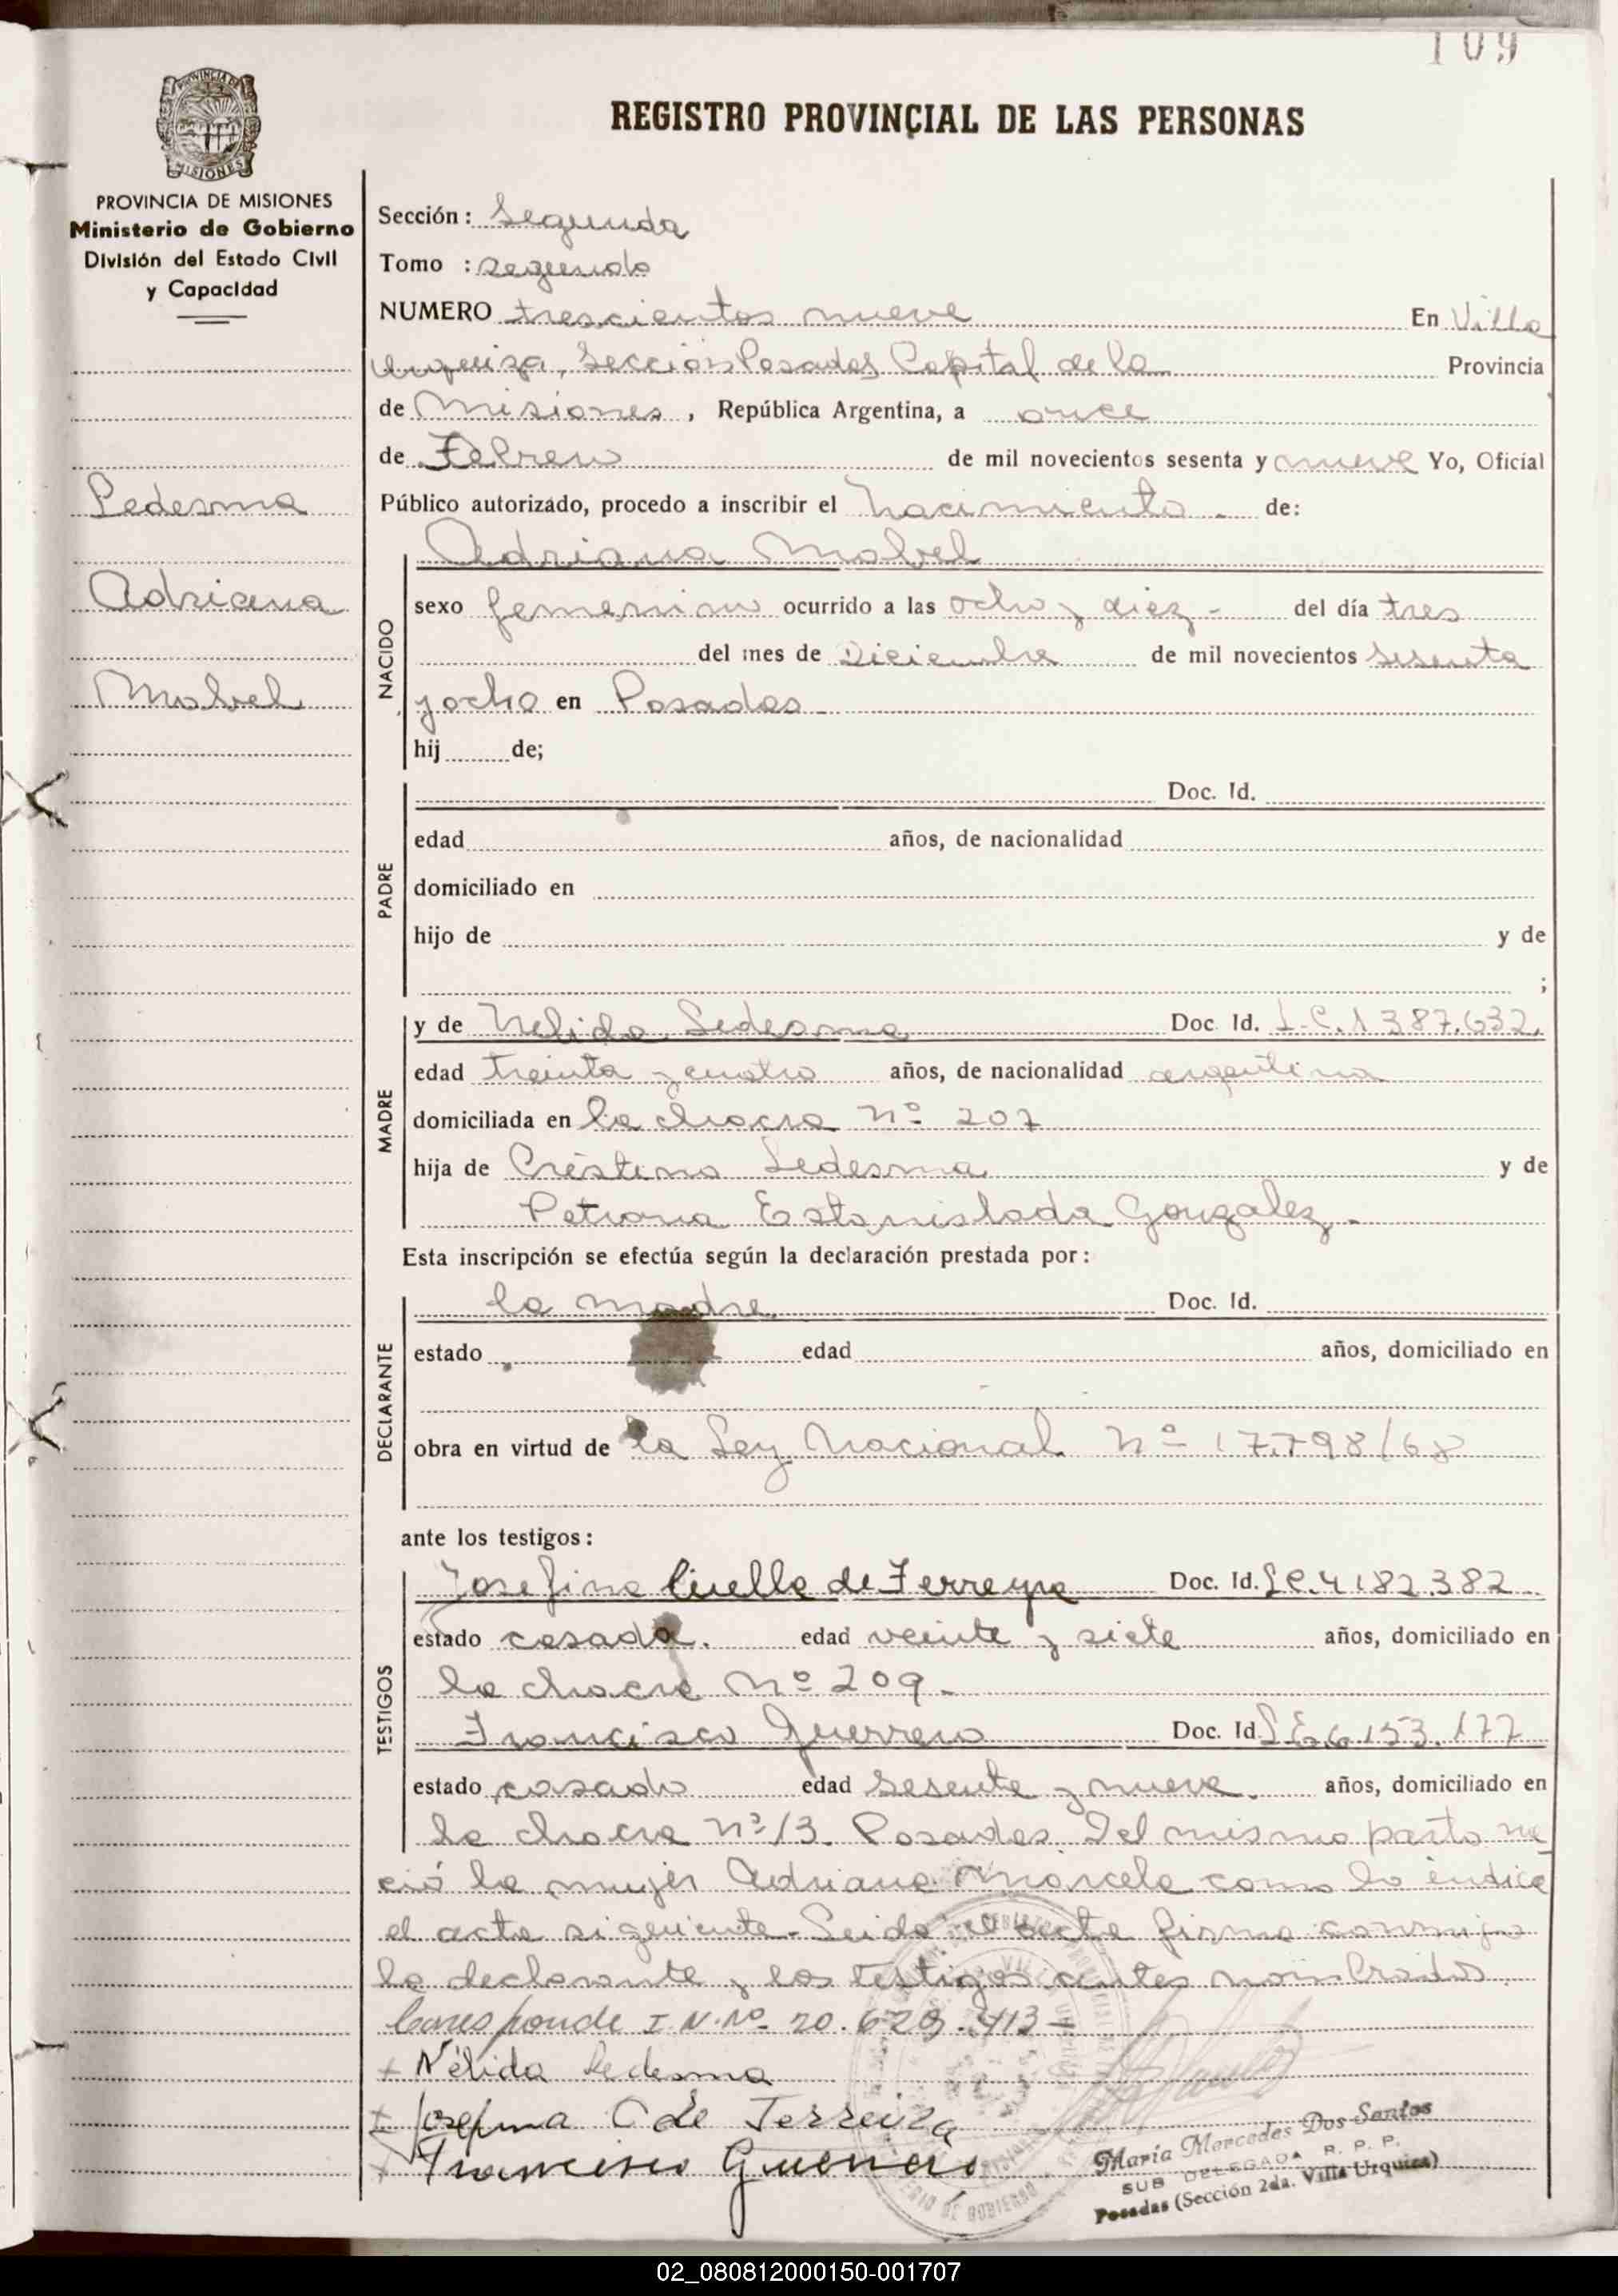 109
PROVINCIA DE
MISIONES
REGISTRO PROVINCIAL DE LAS PERSONAS
PROVINCIA DE MISIONES
Ministerio de Gobierno
División del Estado Civil
y Capacidad
Ledesma
Adriana
Mabel
Sección: Segunda
Tomo : segundo
NUMERO trescientos nueve En Villa
Urquiza, Sección Posadas Capital de la Provincia
de Misiones, República Argentina, a once
de Febrero de mil novecientos sesenta y nueve Yo, Oficial
Público autorizado, procedo a inscribir el nacimiento - de:
Adriana Mabel
NACIDO
sexo femenino ocurrido a las ocho y diez - del día tres
del mes de Diciembre de mil novecientos sesenta
y ocho en Posadas
hij de;
PADRE
Doc. Id.
edad años, de nacionalidad
domiciliado en
hijo de y de
;
MADRE
y de Nelida Ledesma Doc. Id. L.C.1387.632.
edad treinta y cuatro años, de nacionalidad argentina
domiciliada en la chacra Nº 207
hija de Cristino Ledesma y de
Petrona Estanislada Gonzalez.
Esta inscripción se efectúa según la declaración prestada por:
DECLARANTE
la madre Doc. Id.
estado edad años, domiciliado en
obra en virtud de la Ley Nacional Nº 17.798/68
ante los testigos:
TESTIGOS
Josefina Cuella de Ferreyra Doc. Id. LC.4182.382
estado casada. edad veinte y siete años, domiciliado en
la chacra Nº 209-
Francisco Guerrero Doc. Id. L.E.6.153.177
estado casado edad sesenta y nueve. años, domiciliado en
la chacra Nº 13. Posadas. Del mismo parto na
ció la mujer Adriana Marcela como lo indica
el acta siguiente- Leida el acta firma conmigo
la declarante y los testigos antes nombrados.
Corresponde I.N.Nº 20.629.413-
+ Nélida Ledesma
+ Josefina C de Ferreira
+ Francisco Guerrero
María Mercedes Dos Santos
SUB DELEGADA R. P. P.
Posadas (Sección 2da. Villa Urquiza)
02_080812000150-001707